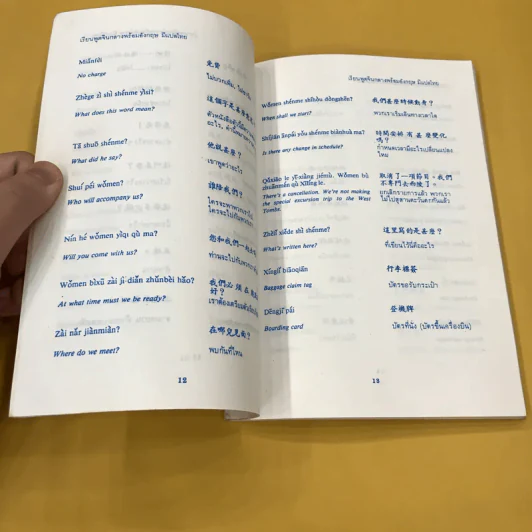 เรียนพูดจีนกลางพร้อมอังกฤษ มีแปลไทย
Miǎnfèi
No charge
免費
ไม่บวกเพิ่ม,
Zhège zì shì shénme yìsi?
What does this word mean?
這個字是甚麼
Tā shuō shénme?
What did he say?
他說甚麼?
เขาพูดว่าอะไร
Shuí péi wǒmen?
Who will accompany us?
誰陪我們?
ใครจะพาพวกเรา
ใครจะไปกับพวกเรา
Nín hé wǒmen yìqǐ qù ma?
Will you come with us?
您和我們一起
ท่านจะไปกับ
Wǒmen bìxū zài jǐ diǎn zhǔnbèi hǎo?
At what time must we be ready?
我們必須在
好?
เราต้องเตรียมตัว
Zài nǎr jiànmiàn?
Where do we meet?
在哪兒見面?
พบกันที่ไหน
12
เรียนพูดจีนกลางพร้อมอังกฤษ มีแปลไทย
Wǒmen shénme shíhòu dòngshēn?
When shall we start?
我們甚麼時候動身?
พวกเราเริ่มเดินทางเวลาใด
Shíjiān ānpái yǒu shénme biànhuà ma?
Is there any change in schedule?
時間安排有甚麼變化
嗎?
กำหนดเวลามีอะไรเปลี่ยนแปลง
ไหม
Qǔxiāo le yí-xiàng jiémù. Wǒmen bù
zhuānmén qù Xīlíng le.
There's a cancellation. We're not making
the special excursion trip to the West
Tombs.
取消了一項節目。我們
不專門去西陵了。
ยกเลิกรายการแล้ว พวกเรา
ไม่ไปสุสานตะวันตกกันแล้ว
Zhèlǐ xiěde shì shénme?
What's written here?
這里寫的是甚麼?
ที่เขียนไว้นี่คืออะไร
Xínglǐ biāoqiān
Baggage claim tag
行李標簽
บัตรขอรับกระเป๋า
Dēngjī pái
Boarding card
登機牌
บัตรที่นั่ง (บัตรขึ้นเครื่องบิน)
13